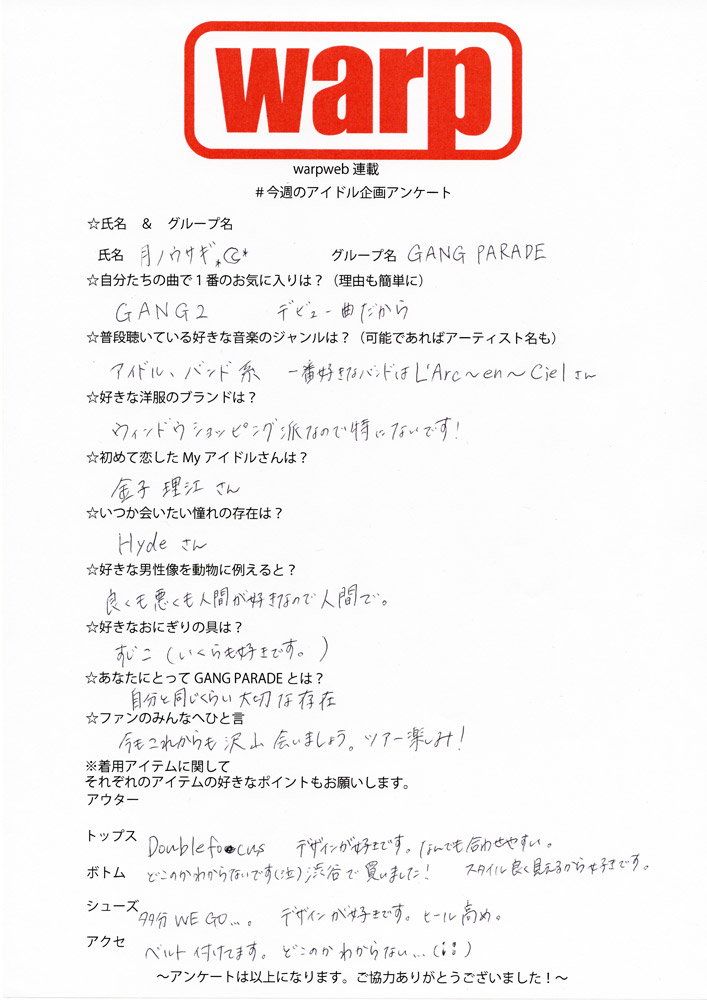 warp
warpweb 連載
＃今週のアイドル企画アンケート
☆氏名　&　グループ名
氏名 月ノウサギ　グループ名 GANG PARADE
☆自分たちの曲で１番のお気に入りは？（理由も簡単に）
GANG2　デビュー曲だから
☆普段聴いている好きな音楽のジャンルは？（可能であればアーティスト名も）
アイドル、バンド系　一番好きなバンドはL'Arc～en～Cielさん
☆好きな洋服のブランドは？
ウィンドウショッピング派なので特にないです！
☆初めて恋した My アイドルさんは？
金子 理江 さん
☆いつか会いたい憧れの存在は？
Hyde さん
☆好きな男性像を動物に例えると？
良くも悪くも人間が好きなので人間で。
☆好きなおにぎりの具は？
すじこ（いくらも好きです。）
☆あなたにとって GANG PARADE とは？
自分と同じくらい大切な存在
☆ファンのみんなへひと言
今もこれからも沢山会いましょう。ツアー楽しみ！
※着用アイテムに関して
それぞれのアイテムの好きなポイントもお願いします。
アウター
トップス　Doublefocus　デザインが好きです。なんでも合わせやすい。
ボトム　どこのかわからないです(泣)渋谷で買いました！　スタイル良く見えるから好きです。
シューズ　多分 WEGO...。　デザインが好きです。ヒール高め。
アクセ　ベルト付けてます。どこのかわからない...(;;)
～アンケートは以上になります。ご協力ありがとうございました！～